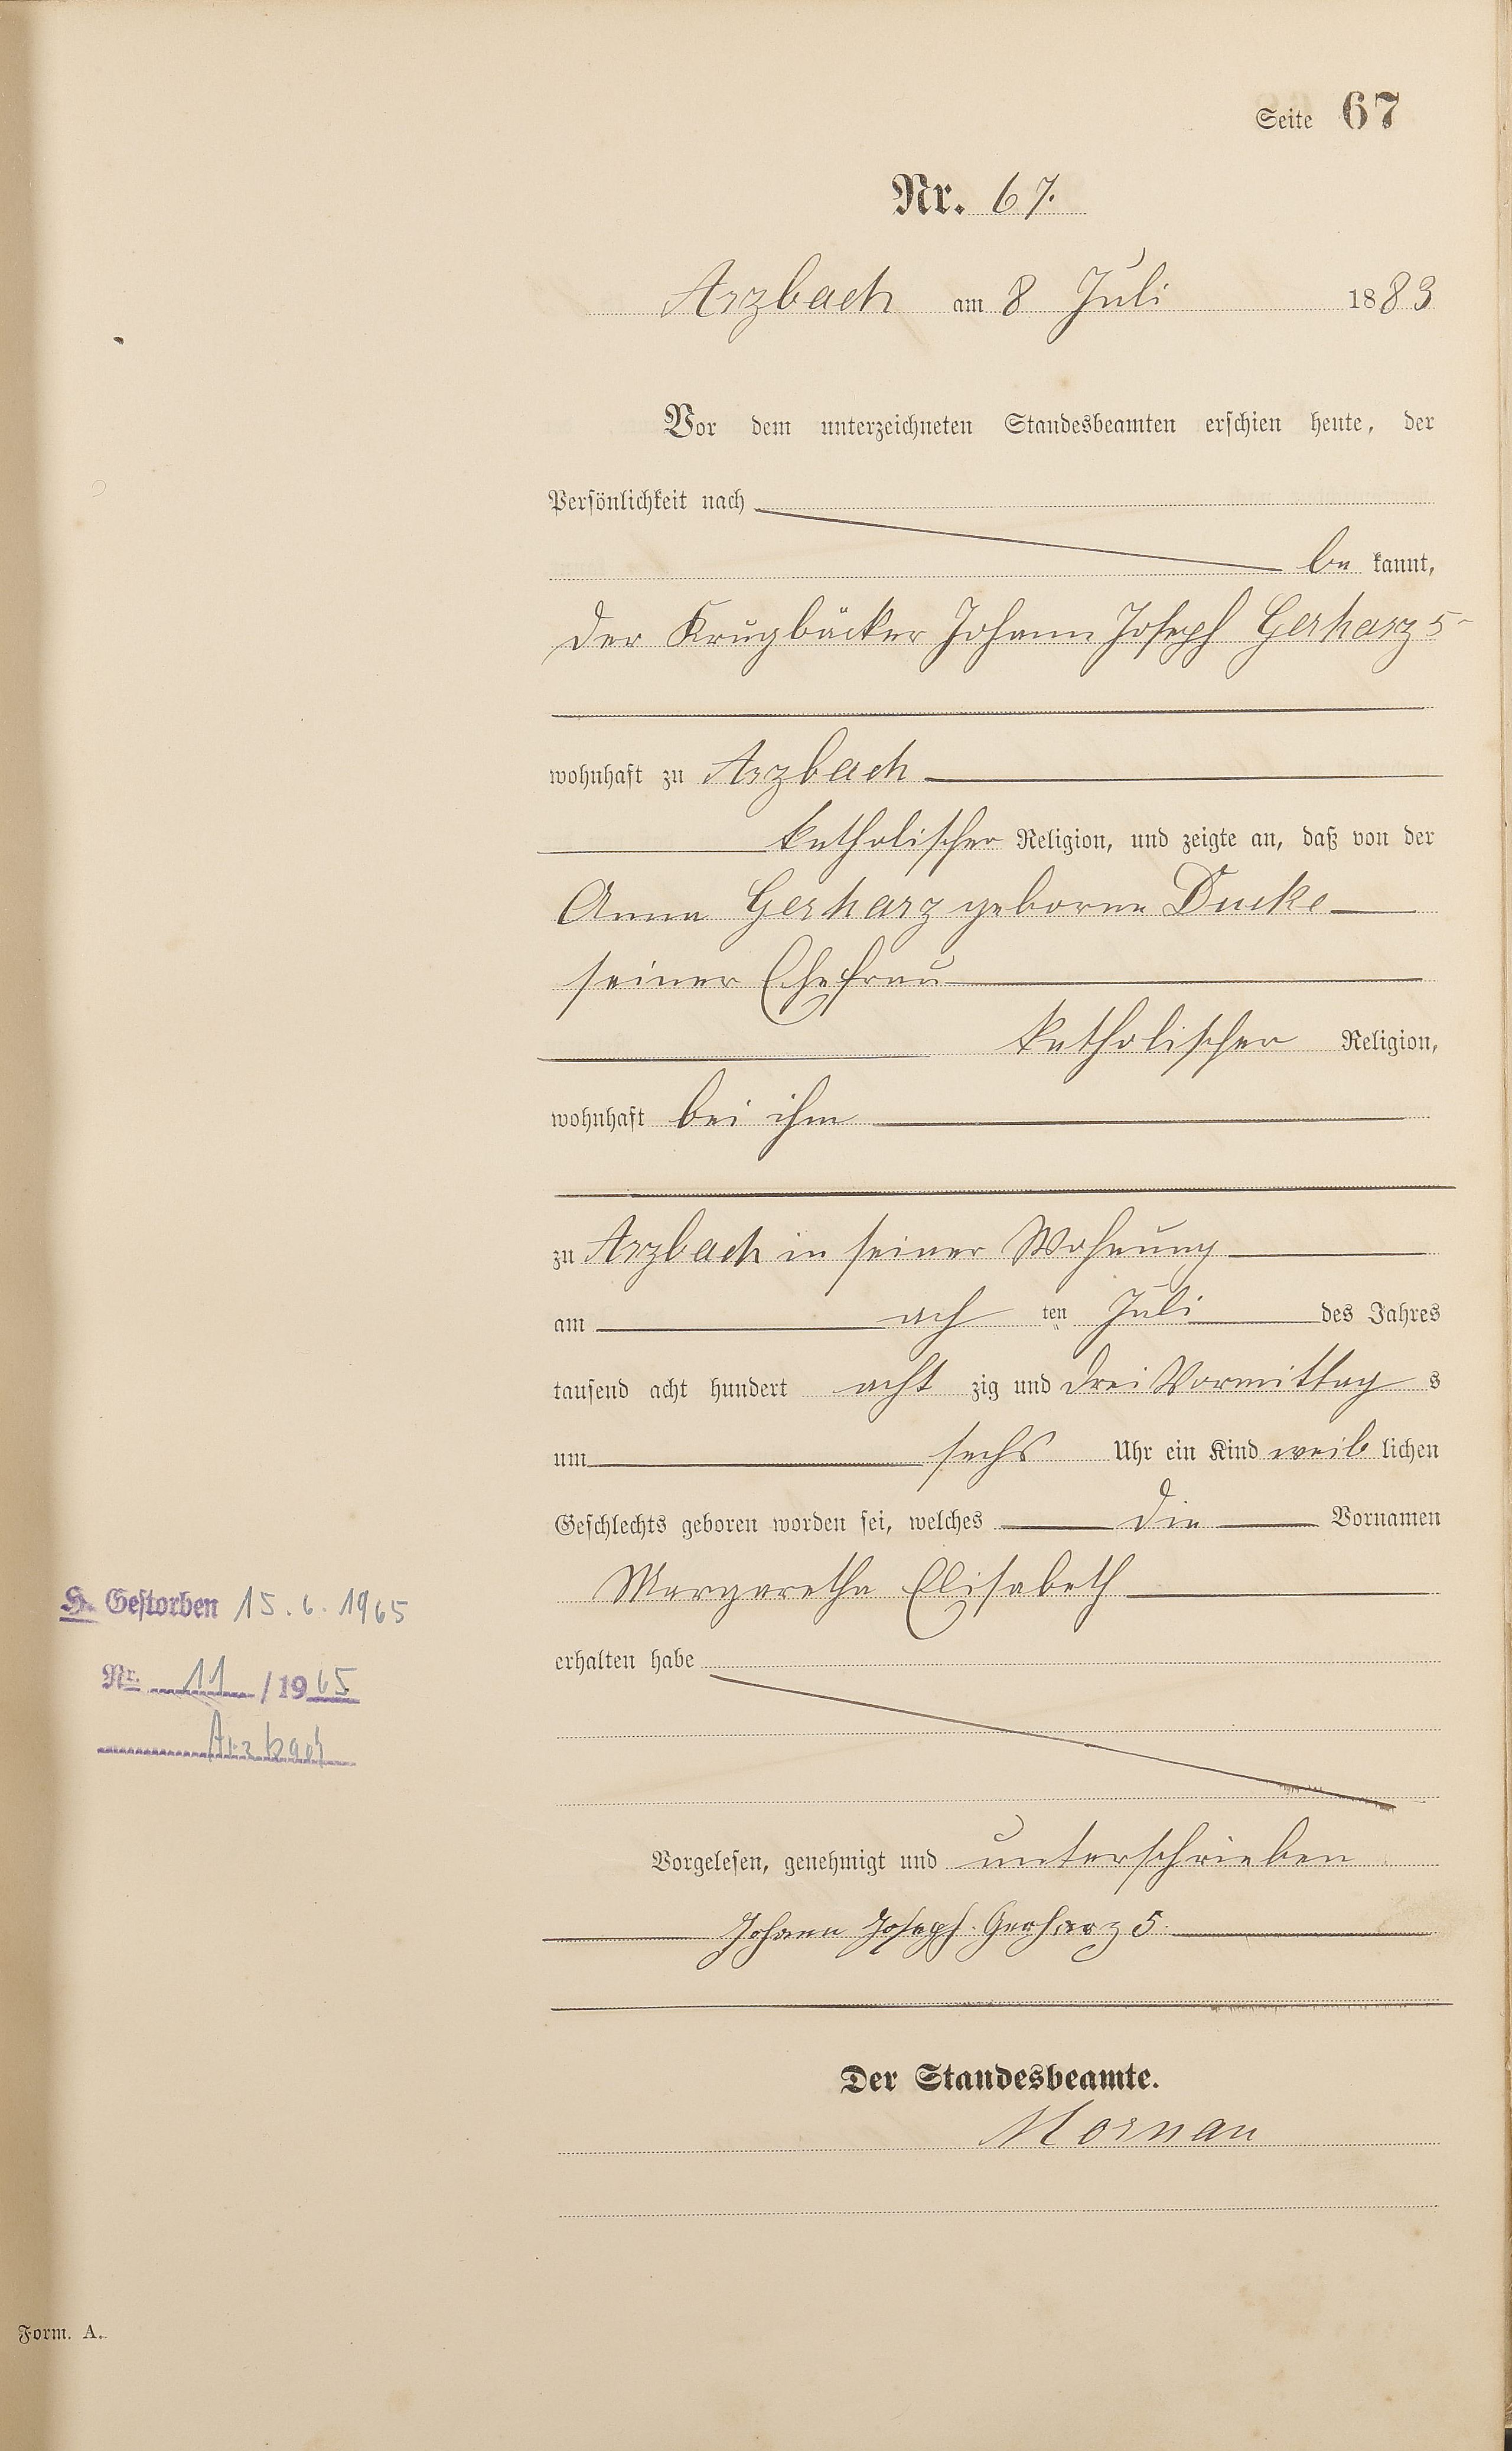 Seite 67
Nr. 67.
Arzbach am 8 Juli 1883
Vor dem unterzeichneten Standesbeamten erschien heute, der
Persönlichkeit nach
be kannt,
der Krugbäcker Johann Joseph Gerharz 5
wohnhaft zu Arzbach
katholischer Religion, und zeigte an, daß von der
Anna Gerharz geborne Ducke
seiner Ehefrau
katholischer Religion,
wohnhaft bei ihm
zu Arzbach in seiner Wohnung
am ach ten Juli des Jahres
tausend acht hundert acht zig und drei Vormittag s
um sechs Uhr ein Kind weib lichen
Geschlechts geboren worden sei, welches die Vornamen
Margaretha Elisabeth
H. Gestorben 15.6.1965
erhalten habe
Nr. 11 / 1965
Arzbach
Vorgelesen, genehmigt und unterschrieben
Johann Joseph Gerharz 5.
Der Standesbeamte.
Mornau
Form. A.